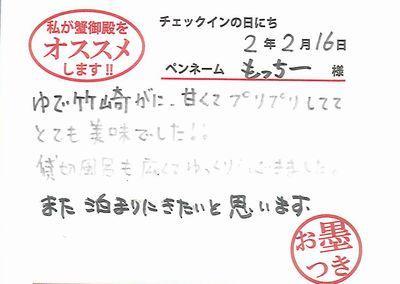 私が蟹御殿を
オススメ
します!!
チェックインの日にち
2年2月16日
ペンネーム もっちー 様
ゆで竹崎がに、甘くてプリプリしてて
とても美味でした!!
貸切風呂も広くてゆっくりできました。
また泊まりにきたいと思います
お墨
つき